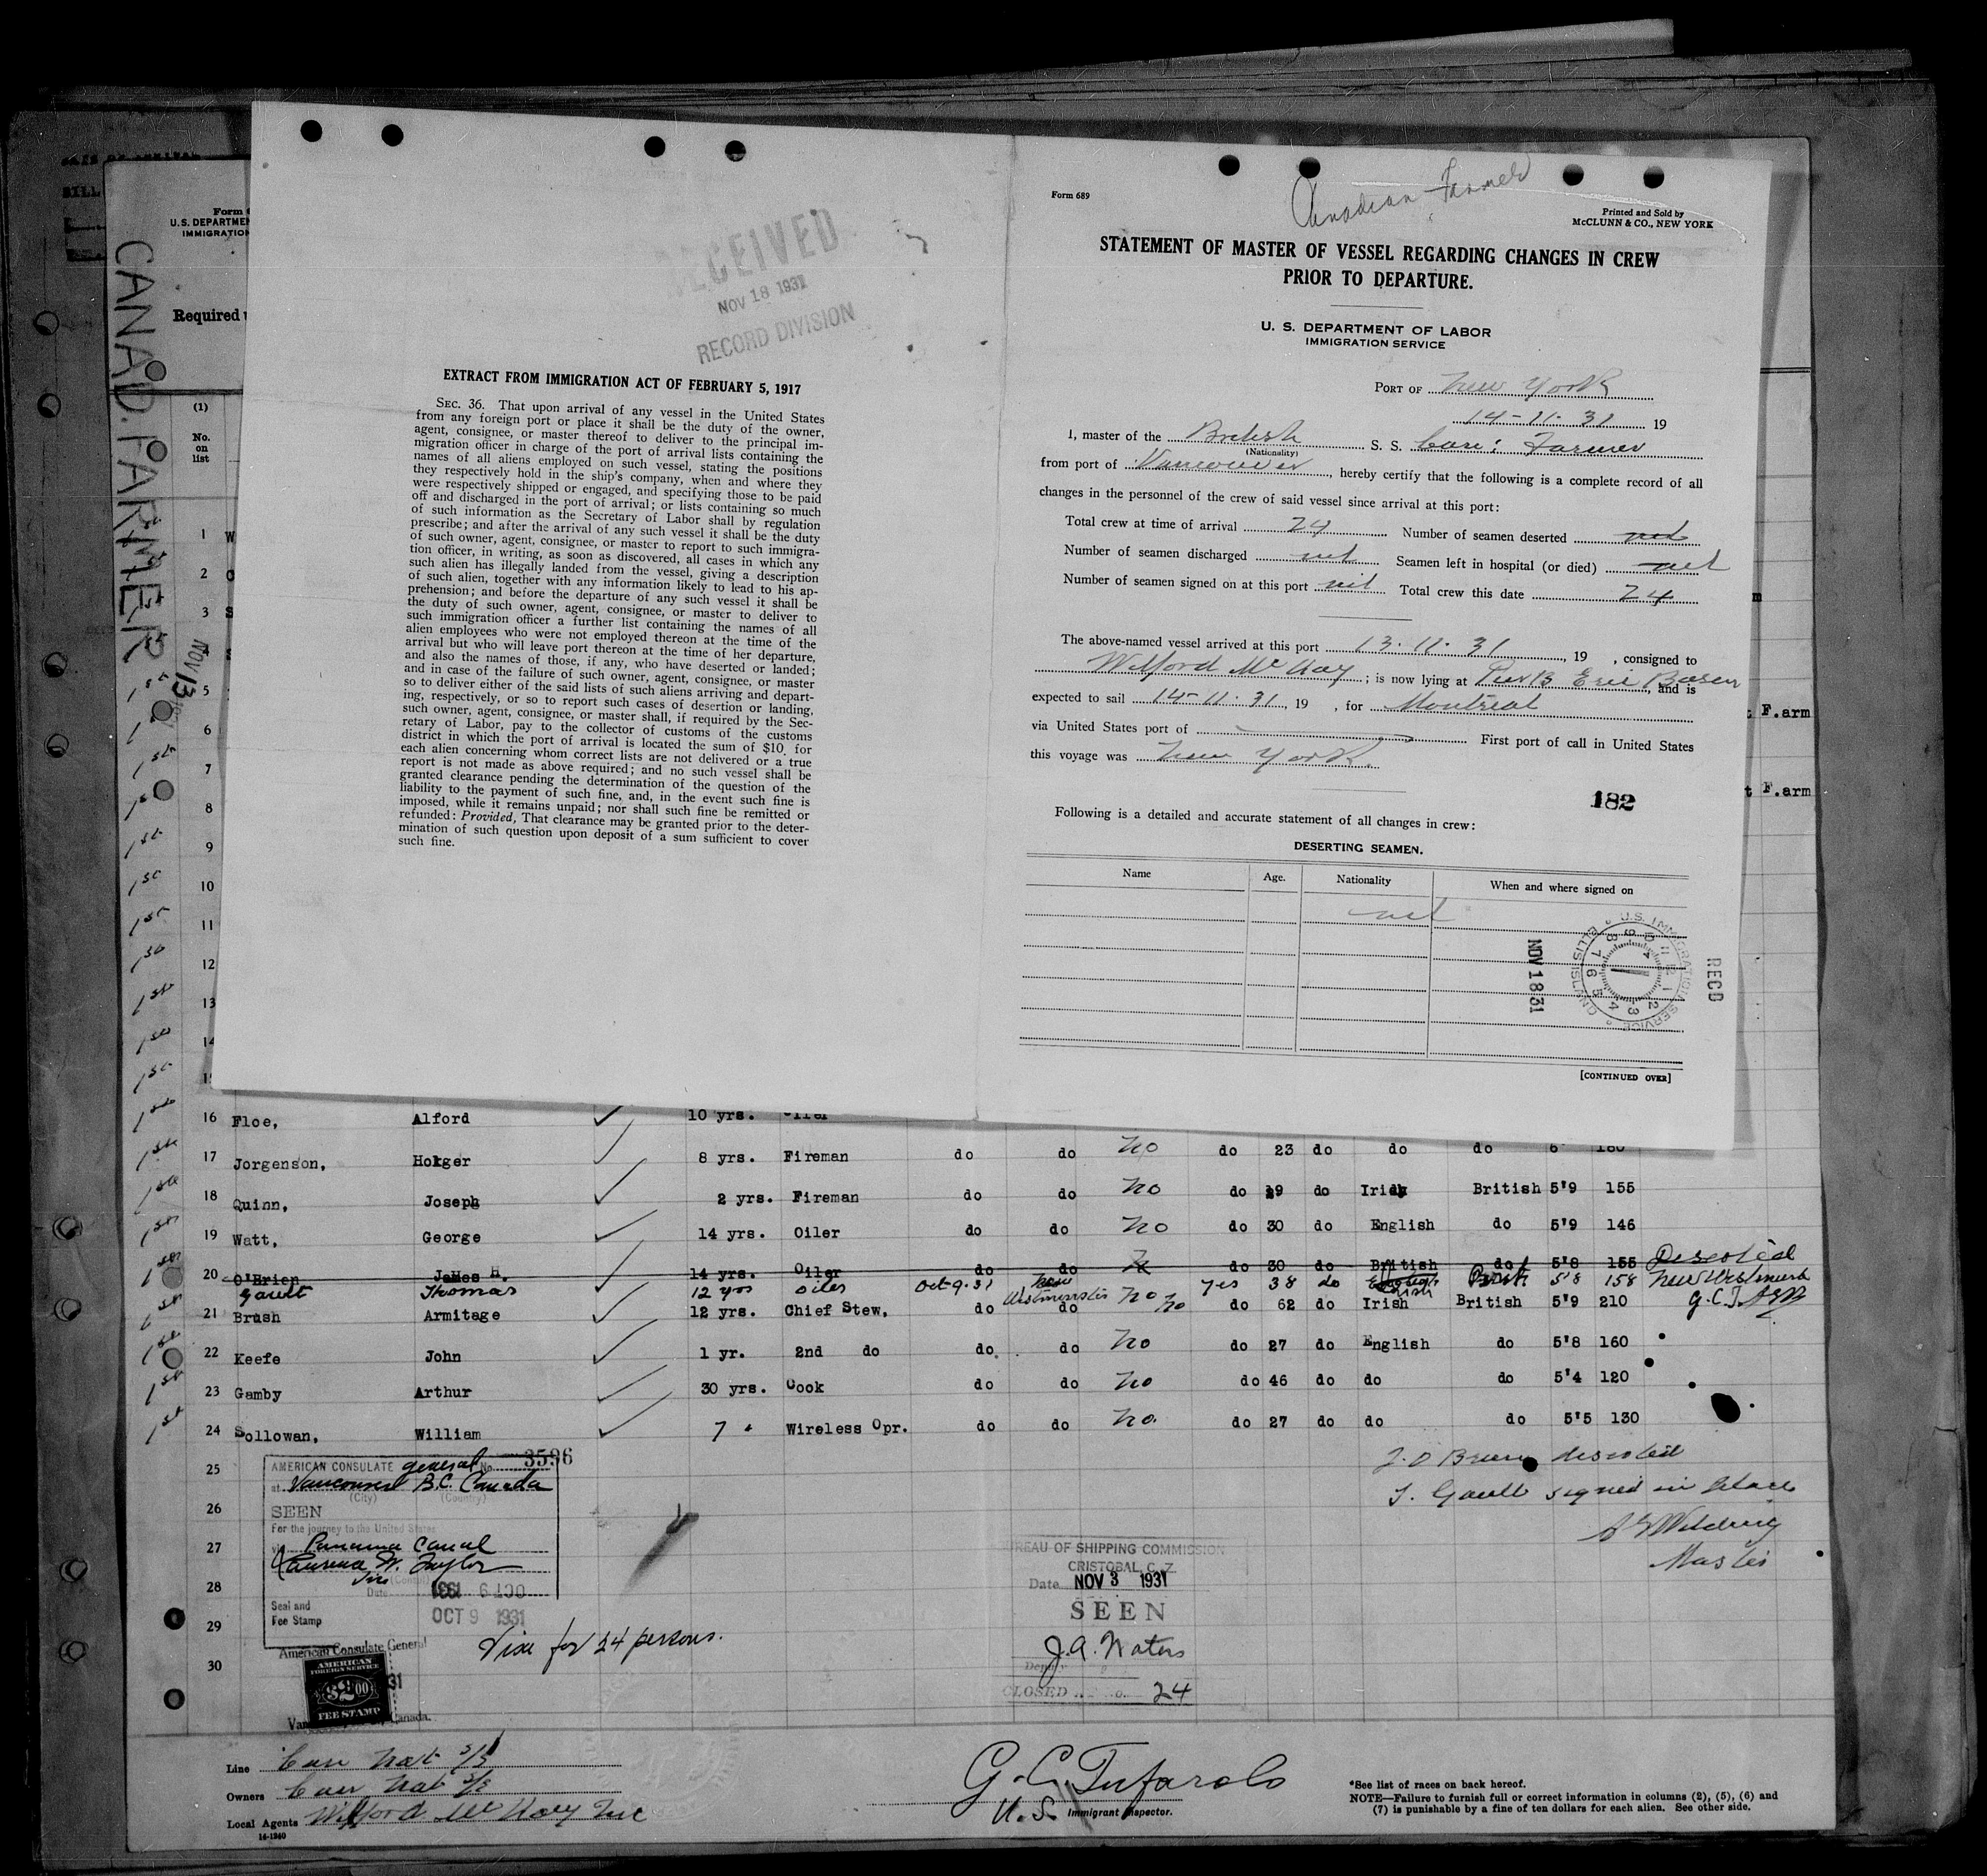 CANAD. FARMER
NOV 13
Form
U.S. DEPARTME
IMMIGRATION
Required
(1)
No.
on
list
1 W
2 C
3 S
5
6
7
8
9
10
11
12
13
14
RECEIVED
NOV 18 1931
RECORD DIVISION
EXTRACT FROM IMMIGRATION ACT OF FEBRUARY 5, 1917
SEC. 36. That upon arrival of any vessel in the United States
from any foreign port or place it shall be the duty of the owner,
agent, consignee, or master thereof to deliver to the principal im-
migration officer in charge of the port of arrival lists containing the
names of all aliens employed on such vessel, stating the positions
they respectively hold in the ship's company, when and where they
were respectively shipped or engaged, and specifying those to be paid
off and discharged in the port of arrival; or lists containing so much
of such information as the Secretary of Labor shall by regulation
prescribe; and after the arrival of any such vessel it shall be the duty
of such owner, agent, consignee, or master to report to such immigra-
tion officer, in writing, as soon as discovered, all cases in which any
such alien has illegally landed from the vessel, giving a description
of such alien, together with any information likely to lead to his ap-
prehension; and before the departure of any such vessel it shall be
the duty of such owner, agent, consignee, or master to deliver to
such immigration officer a further list containing the names of all
alien employees who were not employed thereon at the time of the
arrival but who will leave port thereon at the time of her departure,
and also the names of those, if any, who have deserted or landed;
and in case of the failure of such owner, agent, consignee, or master
so to deliver either of the said lists of such aliens arriving and depart-
ing, respectively, or so to report such cases of desertion or landing,
such owner, agent, consignee, or master shall, if required by the Sec-
retary of Labor, pay to the collector of customs of the customs
district in which the port of arrival is located the sum of $10 for
each alien concerning whom correct lists are not delivered or a true
report is not made as above required; and no such vessel shall be
granted clearance pending the determination of the question of the
liability to the payment of such fine, and, in the event such fine is
imposed, while it remains unpaid; nor shall such fine be remitted or
refunded: Provided, That clearance may be granted prior to the deter-
mination of such question upon deposit of a sum sufficient to cover
such fine.
Form 689
Canadian Farmer
Printed and Sold by
McCLUNN & CO., NEW YORK
STATEMENT OF MASTER OF VESSEL REGARDING CHANGES IN CREW
PRIOR TO DEPARTURE.
U. S. DEPARTMENT OF LABOR
IMMIGRATION SERVICE
PORT OF New York
14-11-31 19
I, master of the British S. S. Can: Farmer
(Nationality)
from port of Vancouver, hereby certify that the following is a complete record of all
changes in the personnel of the crew of said vessel since arrival at this port:
Total crew at time of arrival 24 Number of seamen deserted nil
Number of seamen discharged nil Seamen left in hospital (or died) nil
Number of seamen signed on at this port nil Total crew this date 24
The above-named vessel arrived at this port 13-11-31, 19 , consigned to
Wilford McKay; is now lying at Pier B Erie Basin, and is
expected to sail 14-11-31, 19 , for Montreal
via United States port of First port of call in United States
this voyage was New York.
182
Following is a detailed and accurate statement of all changes in crew:
DESERTING SEAMEN.
Name Age. Nationality When and where signed on
nil
NOV 18 31
U.S. IMMIGRATION SERVICE ELLIS ISLAND
RECD
[CONTINUED OVER]
t F.arm
t F.arm
16 Floe, Alford 10 yrs. Oiler
17 Jorgenson, Holger 8 yrs. Fireman do do No do 23 do do do 6 180
18 Quinn, Joseph 2 yrs. Fireman do do No do 29 do Irish British 5'9 155
19 Watt, George 14 yrs. Oiler do do No do 30 do English do 5'9 146
20 O'Brien James H. 14 yrs. Oiler do do do 30 do British do 5'8 155 Deserted
Gault Thomas 12 yrs Oiler Oct-9-31 New Westminster No yes 38 do Irish Brit. 5'8 158 New Westminst
21 Brush Armitage 12 yrs. Chief Stew. do do No do 62 do Irish British 5'9 210 G.C.T.
22 Keefe John 1 yr. 2nd do do. do No do 27 do English do 5'8 160
23 Gamby Arthur 30 yrs. Cook do do No do 46 do do do 5'4 120
24 Sollowan, William 7 " Wireless Opr. do do No. do 27 do do do 5'5 130
25
26
27
28
29
30
J. O Brien deserted
T. Gault signed in place
Master
AMERICAN CONSULATE General No. 3596
at Vancouver B.C. Canada
(City) (Country)
SEEN
For the journey to the United States
via Panama Canal
Laurence W. Taylor
Vice (Consul)
Date OCT 9 1931
Seal and
Fee Stamp
OCT 9 1931
American Consulate General
AMERICAN
FOREIGN SERVICE
$2.00
FEE STAMP
Canada.
Visa for 24 persons.
BUREAU OF SHIPPING COMMISSION
CRISTOBAL C. Z.
Date NOV 3 1931
SEEN
J.A. Waters
Deputy
CLOSED No. 24
Line Can Nat S/S
Owners Can Nat S/S
Local Agents Wilford McKay Inc
14-1240
G. C. Tufarolo
U.S. Immigrant Inspector.
*See list of races on back hereof.
NOTE—Failure to furnish full or correct information in columns (2), (5), (6) and
(7) is punishable by a fine of ten dollars for each alien. See other side.